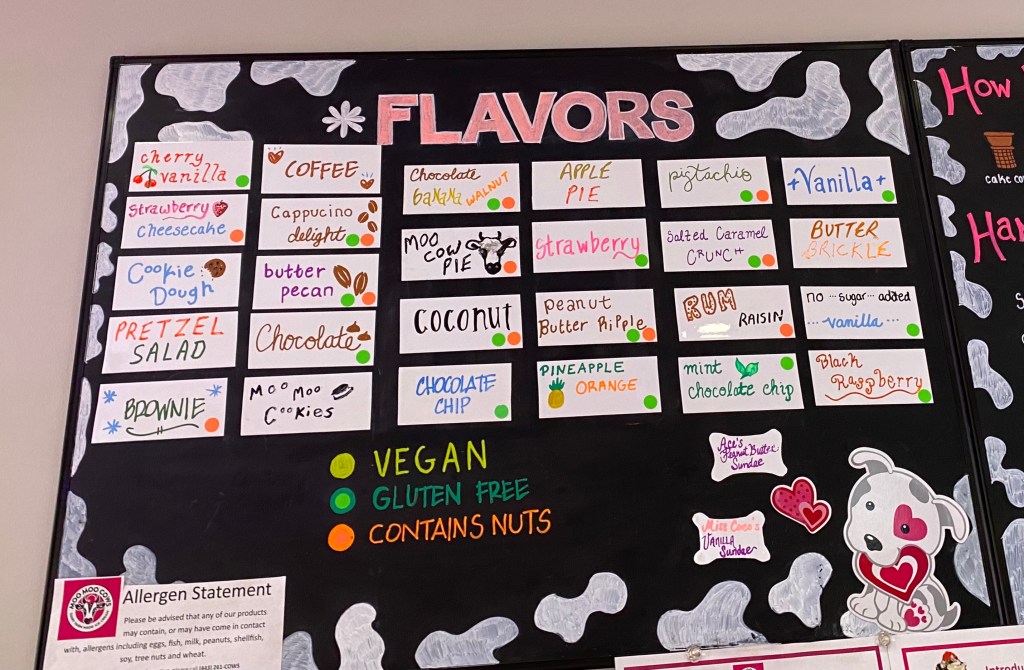 FLAVORS
cherry
vanilla
COFFEE
Chocolate
BaNaNa WALNUT
APPLE
PIE
pistachio
Vanilla
Strawberry
Cheesecake
Cappucino
delight
MOO
COW
PIE
Strawberry
Salted Caramel
CRUNCH
BUTTER
BRICKLE
Cookie
Dough
butter
pecan
COCONUT
Peanut
Butter Ripple
RUM
RAISIN
no ... sugar ... added
... vanilla ...
PRETZEL
SALAD
Chocolate
CHOCOLATE
CHIP
PINEAPPLE
ORANGE
mint
chocolate chip
Black
Raspberry
BROWNIE
Moo Moo
Cookies
VEGAN
GLUTEN FREE
CONTAINS NUTS
Ace's
Peanut Butter
Sundae
Miss Coco's
Vanilla
Sundae
MOO MOO COWS
Allergen Statement
Please be advised that any of our products
may contain, or may have come in contact
with, allergens including eggs, fish, milk, peanuts, shellfish,
soy, tree nuts and wheat.
call (963) 261-COWS
How
cake
Introdu